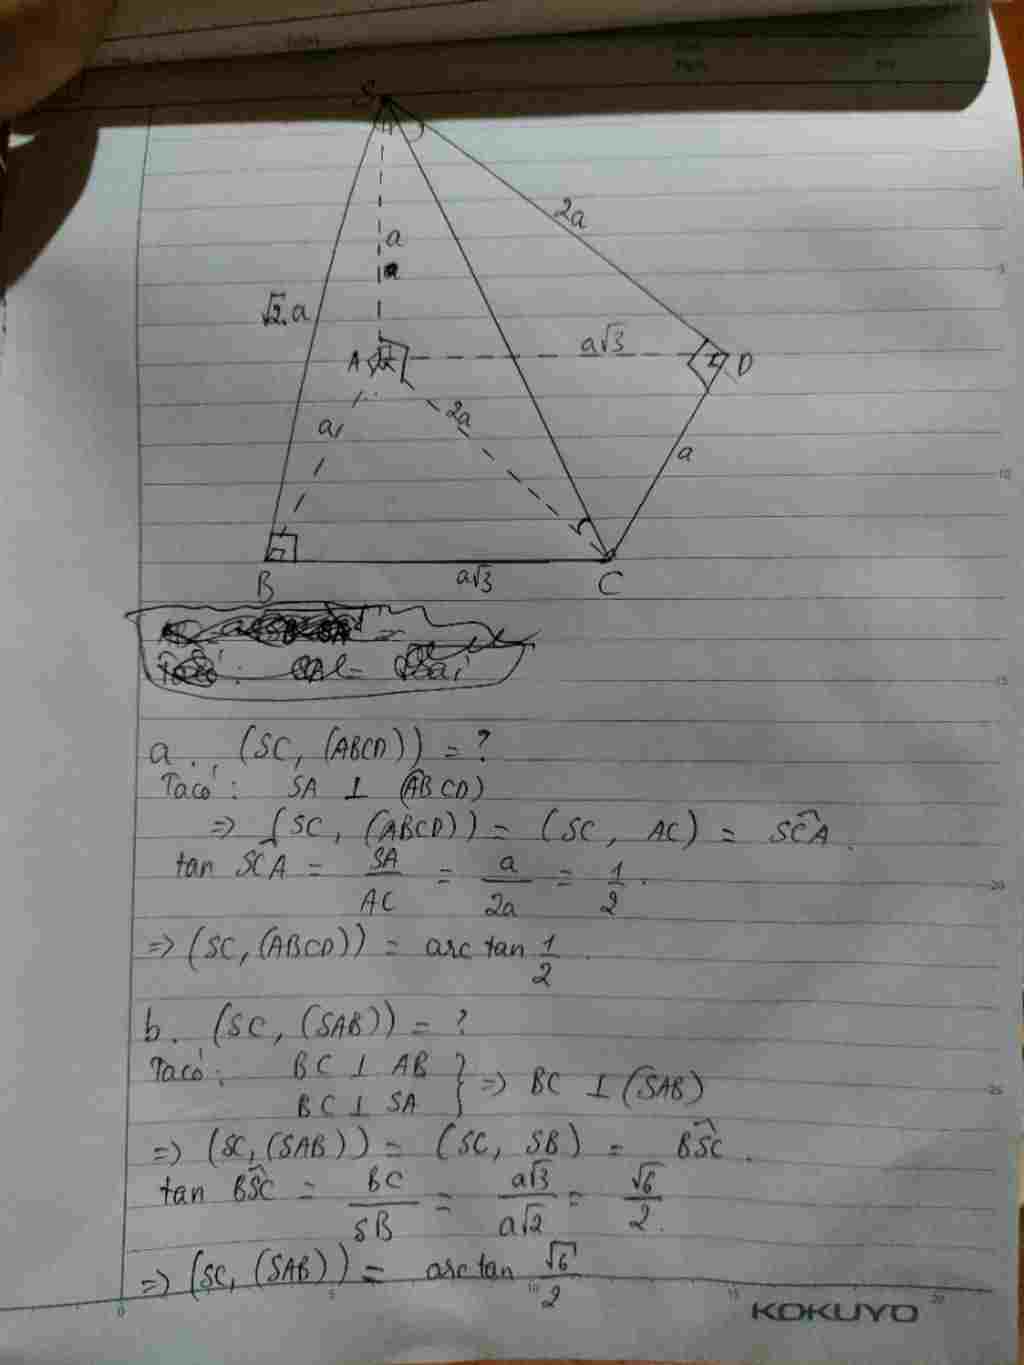 S
2a
a
√2.a
A
a√3
D
a
2a
a
B
a√3
C
a. (SC, (ABCD)) = ?
Ta có: SA ⊥ (ABCD)
=> (SC, (ABCD)) = (SC, AC) = SĈA.
tan SĈA = SA/AC = a/2a = 1/2.
=> (SC, (ABCD)) = arc tan 1/2.
b. (SC, (SAB)) = ?
Ta có: BC ⊥ AB
BC ⊥ SA } => BC ⊥ (SAB)
=> (SC, (SAB)) = (SC, SB) = BŜC.
tan BŜC = BC/SB = a√3/a√2 = √6/2.
=> (SC, (SAB)) = arc tan √6/2
0 5 10 15 20
KOKUYO